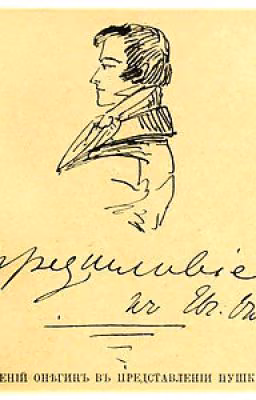 предисловіе
къ Ев. Он
ЕНІЙ ОНѢГИНЪ ВЪ ПРЕДСТАВЛЕНІИ ПУШК